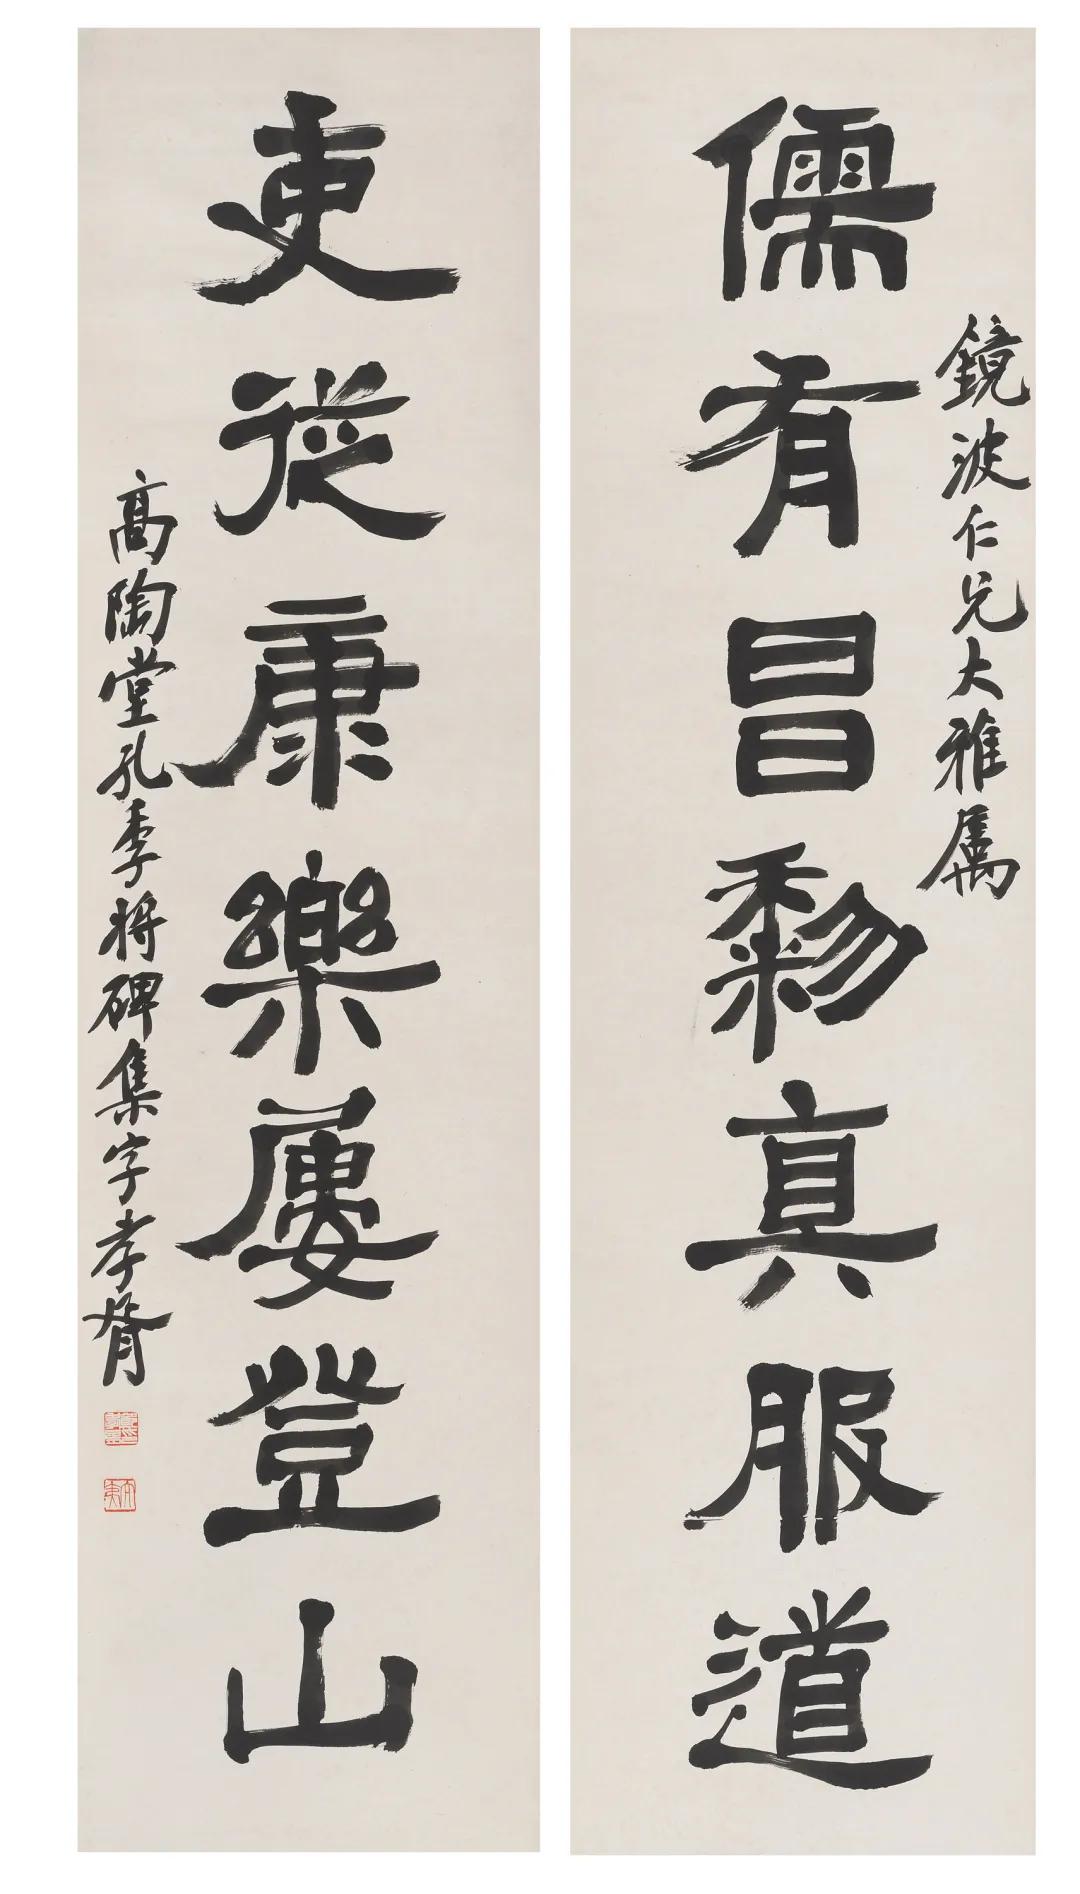 鏡波仁兄大雅属
儒有昌黎真服道
吏從康樂屢登山
高陶堂孔季将碑集字孝胥